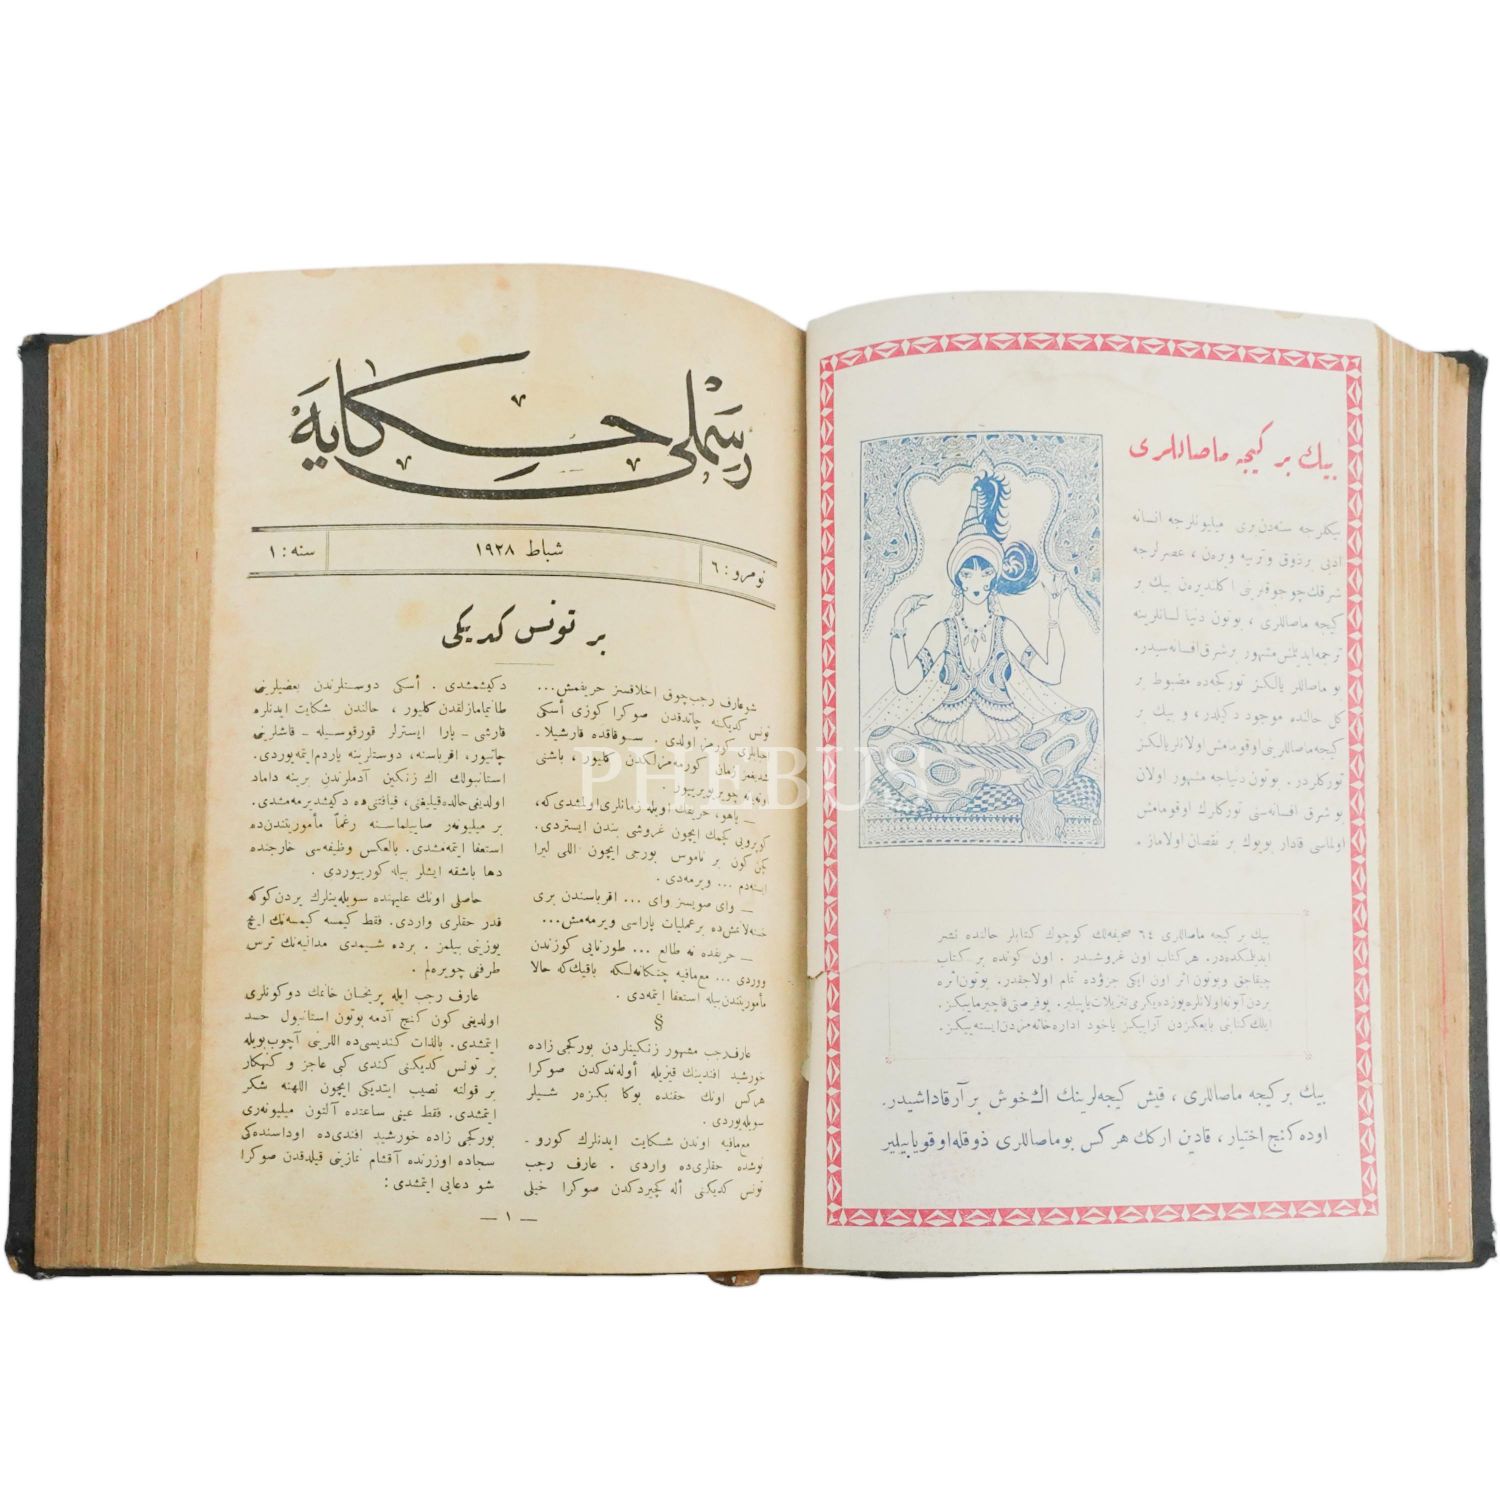 رسملی حکایه
نومرو : ٦
شباط ١٩٢٨
سنه : ١
بر تونس كديكی
شو عارف رجب چوق اخلاقسز حريفمش...
تونس كديكنه چاتدقدن صوكرا كوزی أسكی
احبابلری كورمز اولدی . سوقاقده قارشيلا-
شديغمز زمان كورمه مزلكدن كليور ، باشنی
اوته يه چويريويرييور .
— ياهو، حريفك اويله زمانلری اولمشدی كه،
كوپرويی كچمك ايچون غروشی بندن ايستردی.
كچن كون بر ناموس بورجی ايچون اللی ليرا
ايسته دم ... ويرمه دی .
— وای صويسز وای ... اقرباسندن بری
خسته لانمش ده بر عمليات پاراسی ويرمه مش...
— حريفده نه طالع ... طورنايی كوزندن
ووردی ... مع مافيه چنكانه لكه باقيك كه حالا
مأموريتندن بيله استعفا ايتمه دی .
§
عارف رجب مشهور زنكينلردن بوركجی زاده
خورشيد افندينك قيزيله أوله ندكدن صوكرا
هركس اونك حقنده بوكا بكزه ر شيلر
سويله يوردی .
مع مافيه اوندن شكايت ايدنلرك كورو-
نوشده حقلری ده واردی . عارف رجب
تونس كديكنی أله كچيردكدن صوكرا خيلی
دكيشمشدی . أسكی دوستلرندن بعضيلرينی
طانيمامازلقدن كليور ، حالندن شكايت ايدنلره
قارشی - پارا ايسترلر قورقوسيله - قاشلرينی
چاتييور، اقرباسنه، دوستلرينه ياردم ايتمه يوردی.
استانبولك اك زنكين آدملرندن برينه داماد
اولديغی حالده قيليغنی، قيافتنی ده دكيشديرمه مشدی.
بر ميليونه ر صاييلماسنه رغماً مأموريتندن ده
استعفا ايتمه مشدی. بالعكس وظيفه سی خارجنده
دها باشقه ايشلر بيله كورييوردی .
حاصلی اونك عليهنده سويله ينلرك يردن كوكه
قدر حقلری واردی. فقط كيمسه كيمسه نك ايچ
يوزينی بيلمز . برده شيمدی مداليه نك ترس
طرفنی چويره لم .
عارف رجب ايله پريخان خانمك دوكونلری
اولديغی كون كنج آدمه بوتون استانبول حسد
ايتمشدی. بالذات كنديسی ده اللرينی آچوب بويله
بر تونس كديكنی كندی كبی عاجز و كنهكار
بر قولنه نصيب ايتديكی ايچون اللهنه شكر
ايتمشدی. فقط عينی ساعتده آلتون ميليونه ری
بوركجی زاده خورشيد افندی ده اوداسنده كی
سجاده اوزرنده آقشام نمازينی قيلدقدن صوكرا
شو دعايی ايتمشدی :
— ١ —
بيك بر كيجه ماصاللری
بيكلرجه سنه دن بری ميليونلرجه انسانه
ادبی بر ذوق و تربيه ويره ن ، عصرلرجه
شرقك چوجوقلرينی اكلنديره ن بيك بر
كيجه ماصاللری ، بوتون دنيا لسانلرينه
ترجمه ايديلمش مشهور بر شرق افسانه سيدر.
بو ماصاللر يالكز توركجه ده مضبوط بر
كل حالنده موجود دكيلدر ، و بيك بر
كيجه ماصاللرينی اوقومامش اولانلر يالكز
توركلردر . بوتون دنياجه مشهور اولان
بو شرق افسانه سنی توركلرك اوقومامش
اولماسی قادار بويوك بر نقصان اولاماز .
بيك بر كيجه ماصاللری ٦٤ صحيفه لك كوچوك كتابلر حالنده نشر
ايديلمكده در. هر كتاب اون غروشدر . اون كونده بر كتاب
چيقاجق و بوتون اثر اون ايكی جزؤده تمام اولاجقدر. بوتون اثره
بردن آبونه اولانلره يوزده يكرمی تنزيلات ياپيلير. بو فرصتی قاچيرماييكز.
ايلك كتابی بايعكزدن آراييكز ياخود اداره خانه مزدن ايسته ييكز.
بيك بر كيجه ماصاللری ، قيش كيجه لرينك اك خوش بر آرقاداشيدر.
اوده كنج اختيار ، قادين اركك هر كس بو ماصاللری ذوقله اوقويابيلير
PHEBUS